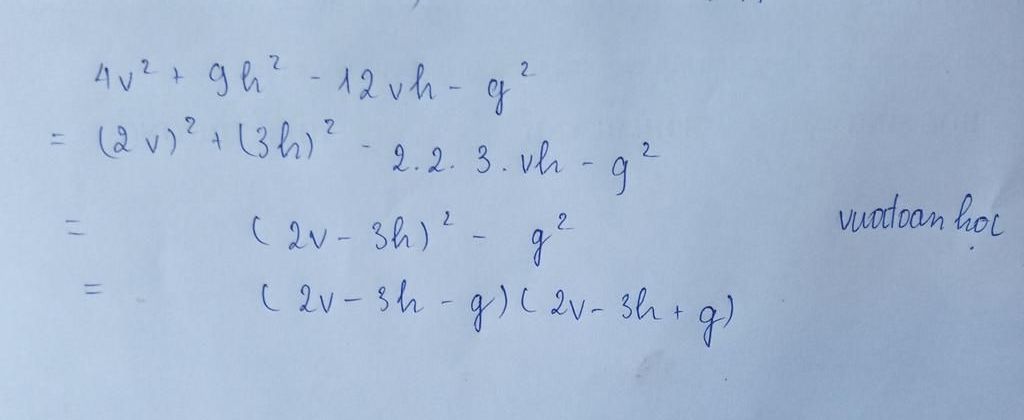 4v² + 9h² - 12vh - g²
= (2v)² + (3h)² - 2.2.3.vh - g²
= (2v - 3h)² - g²
vuatoan học
= (2v - 3h - g)(2v - 3h + g)